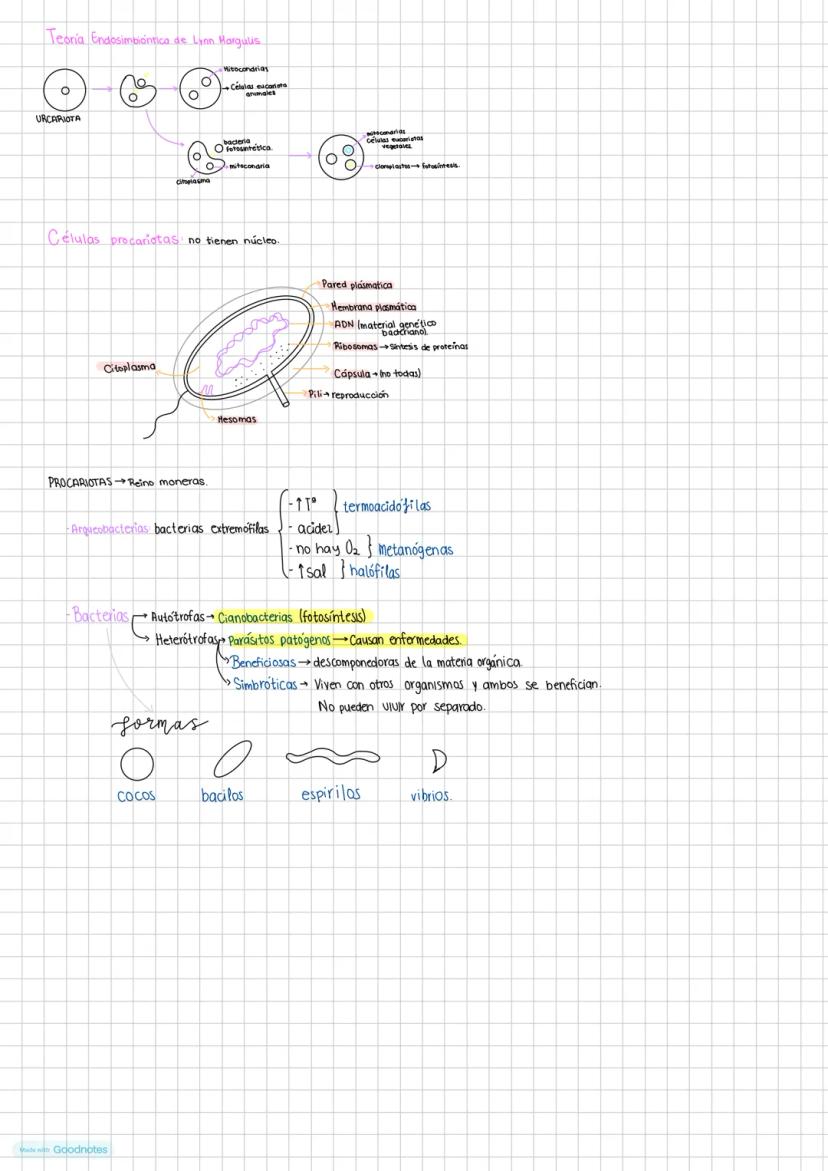 Teoría Endosimbióntica de Lynn Margulis
mitocondrias
Células eucariota
animales
URCARIOTA
bacteria
fotosintética.
mitocondria
citoplasma
mitocondrias
Células eucariotas
vegetales
cloroplastos → fotosíntesis.
Células procariotas: no tienen núcleo.
Pared plásmatica
Membrana plasmática
ADN (material genético
bacteriano).
Ribosomas → síntesis de proteínas
Citoplasma
Cápsula → (no todas)
Pili → reproducción
Mesomas
PROCARIOTAS → Reino moneras.
- ↑Tª
termoacidófilas
- Arqueobacterias: bacterias extremófilas
- acidez
- no hay O₂ } metanógenas
- ↑sal } halófilas
- Bacterias → Autótrofas → Cianobacterias (fotosíntesis)
→ Heterótrofas → Parásitos patógenos → Causan enfermedades.
Beneficiosas → descomponedoras de la materia orgánica.
Simbróticas → Viven con otros organismos y ambos se benefician.
No pueden vivir por separado.
formas
cocos bacilos espirilos vibrios.
Made with Goodnotes